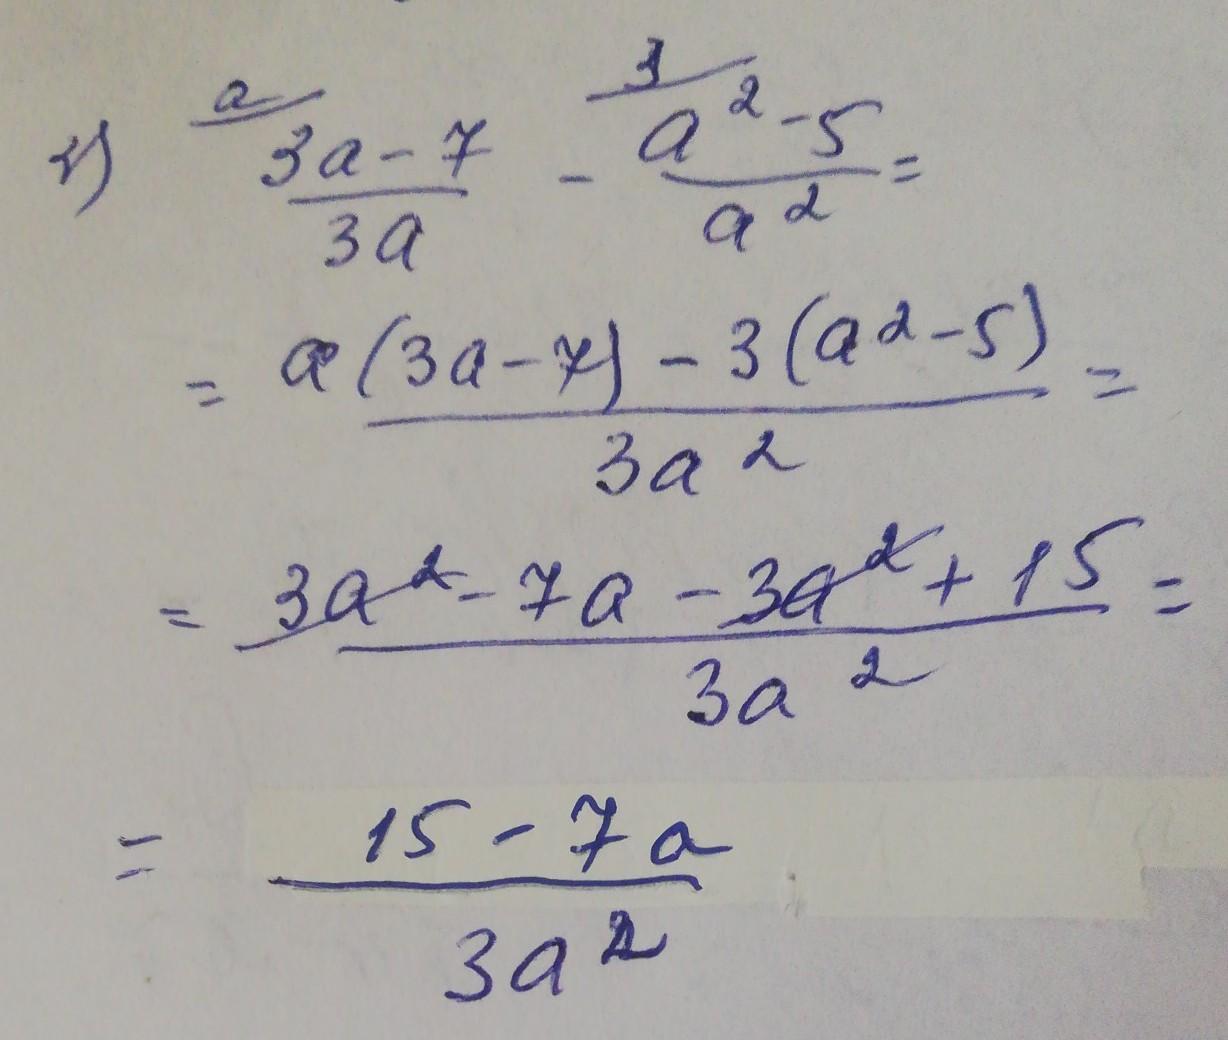 г) a 3a-7/3a - 3 a²-5/a² =
= a(3a-7) - 3(a²-5)/3a² =
= 3a²-7a-3a²+15/3a² =
= 15-7a/3a²